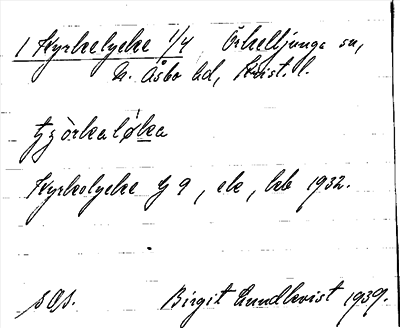 1 Kyrkelycke 1/4 Örkelljunga sn,
N. Åsbo hd, Krist. l.
Kyrkelycke G 9, ek, kb 1932.
SOS. Birgit Lundkvist 1939.